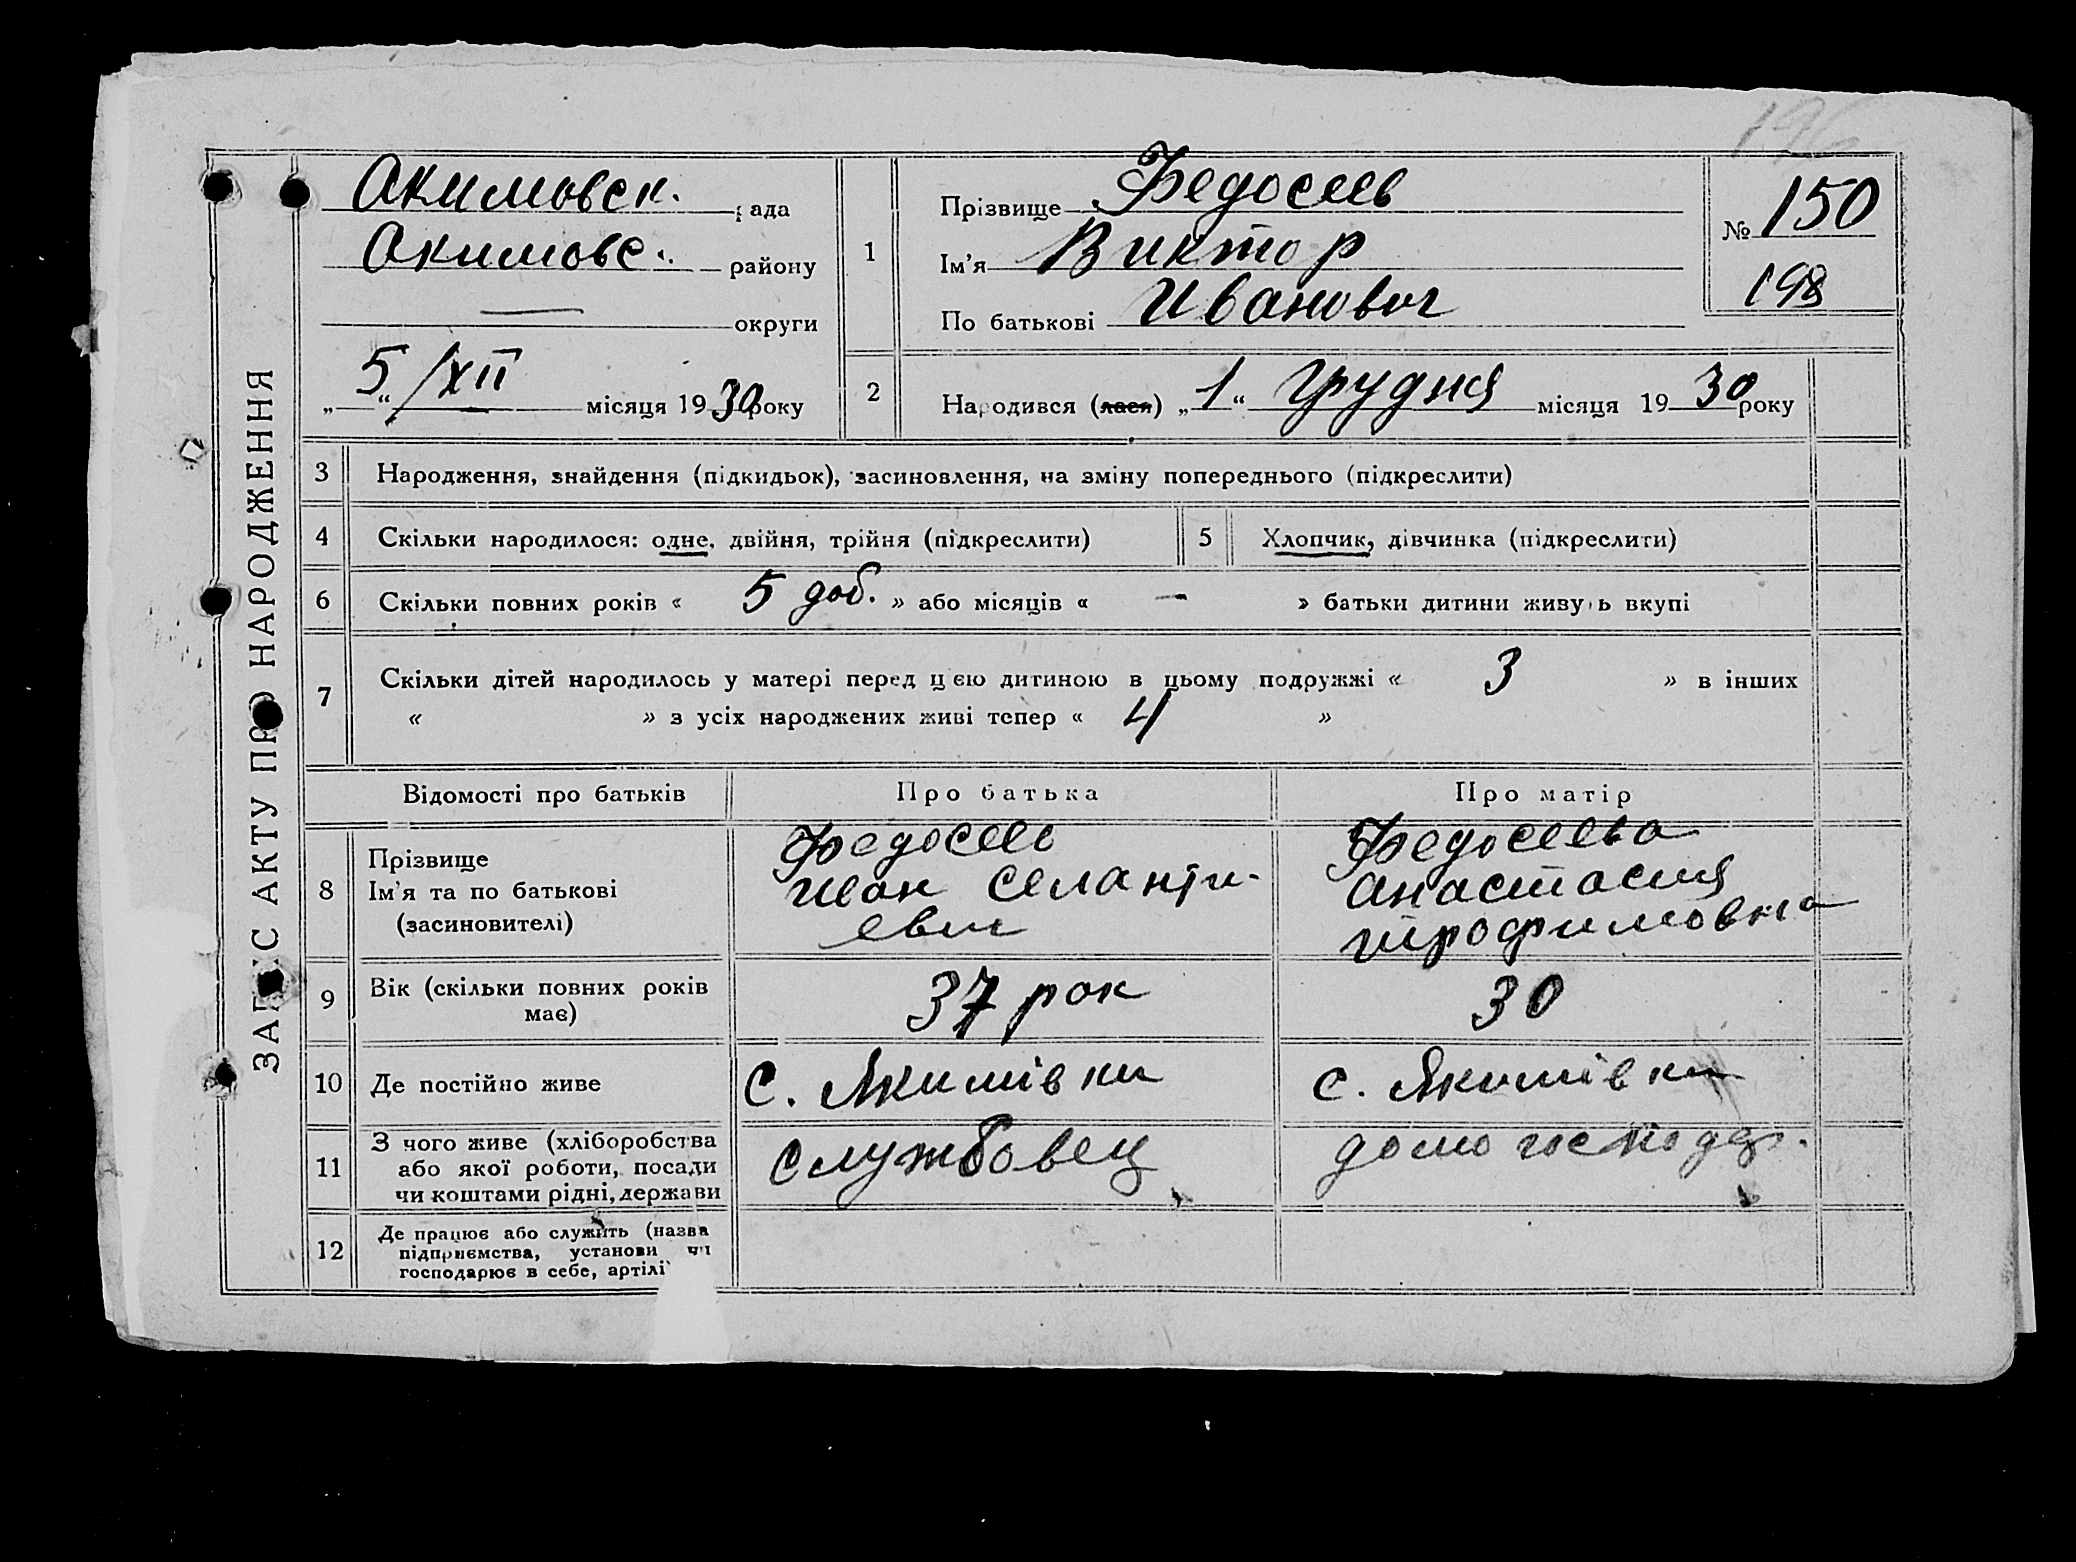 196
ЗАПИС АКТУ ПРО НАРОДЖЕННЯ
Акимовск. рада
Акимовс. району
— округи
5/XII місяця 1930 року
1
Прізвище Федосеев
Ім'я Виктор
По батькові Иванович
№ 150
198
2 Народився (лася) „1“ Грудня місяця 1930 року
3 Народження, знайдення (підкидьок), засиновлення, на зміну попереднього (підкреслити)
4 Скільки народилося: одне, двійня, трійня (підкреслити) 5 Хлопчик, дівчинка (підкреслити)
6 Скільки повних років « 5 » або місяців « — » батьки дитини живуть вкупі
7 Скільки дітей народилось у матері перед цією дитиною в цьому подружжі « 3 » в інших
« » з усіх народжених живі тепер « 4 »
Відомості про батьків Про батька Про матір
8 Прізвище
Ім'я та по батькові
(засиновителі)
Федосеев
Иван Селанти-
евич
Федосеева
Анастасия
Трофимовна
9 Вік (скільки повних років
має)
37 рок
30
10 Де постійно живе с. Якимівки с. Якимівки
11 З чого живе (хліборобства
або якої роботи, посади
чи коштами рідні, держави
службовец
домогосподар.
12 Де працює або служить (назва
підприємства, установи чи
господарює в себе, артілі